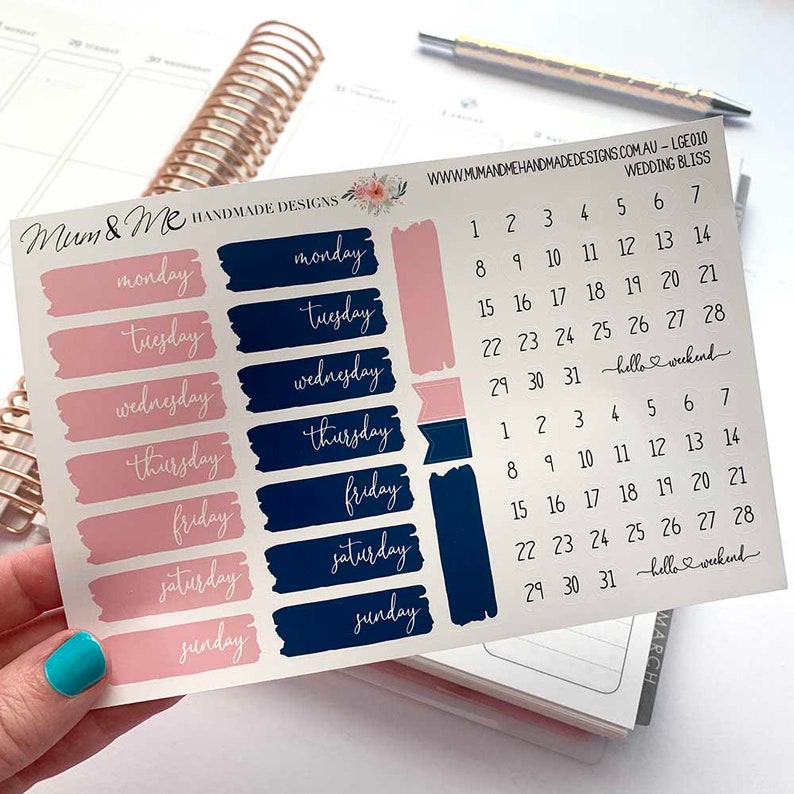 MONDAY
29 TUESDAY
WEDNESDAY
31 THURSDAY
1 FRIDAY
2
Mum & Me HANDMADE DESIGNS
WWW.MUMANDMEHANDMADEDESIGNS.COM.AU – LGE010
WEDDING BLISS
monday
tuesday
wednesday
thursday
friday
saturday
sunday
monday
tuesday
wednesday
thursday
friday
saturday
sunday
1 2 3 4 5 6 7
8 9 10 11 12 13 14
15 16 17 18 19 20 21
22 23 24 25 26 27 28
29 30 31 hello weekend
1 2 3 4 5 6 7
8 9 10 11 12 13 14
15 16 17 18 19 20 21
22 23 24 25 26 27 28
29 30 31 hello weekend
MARCH